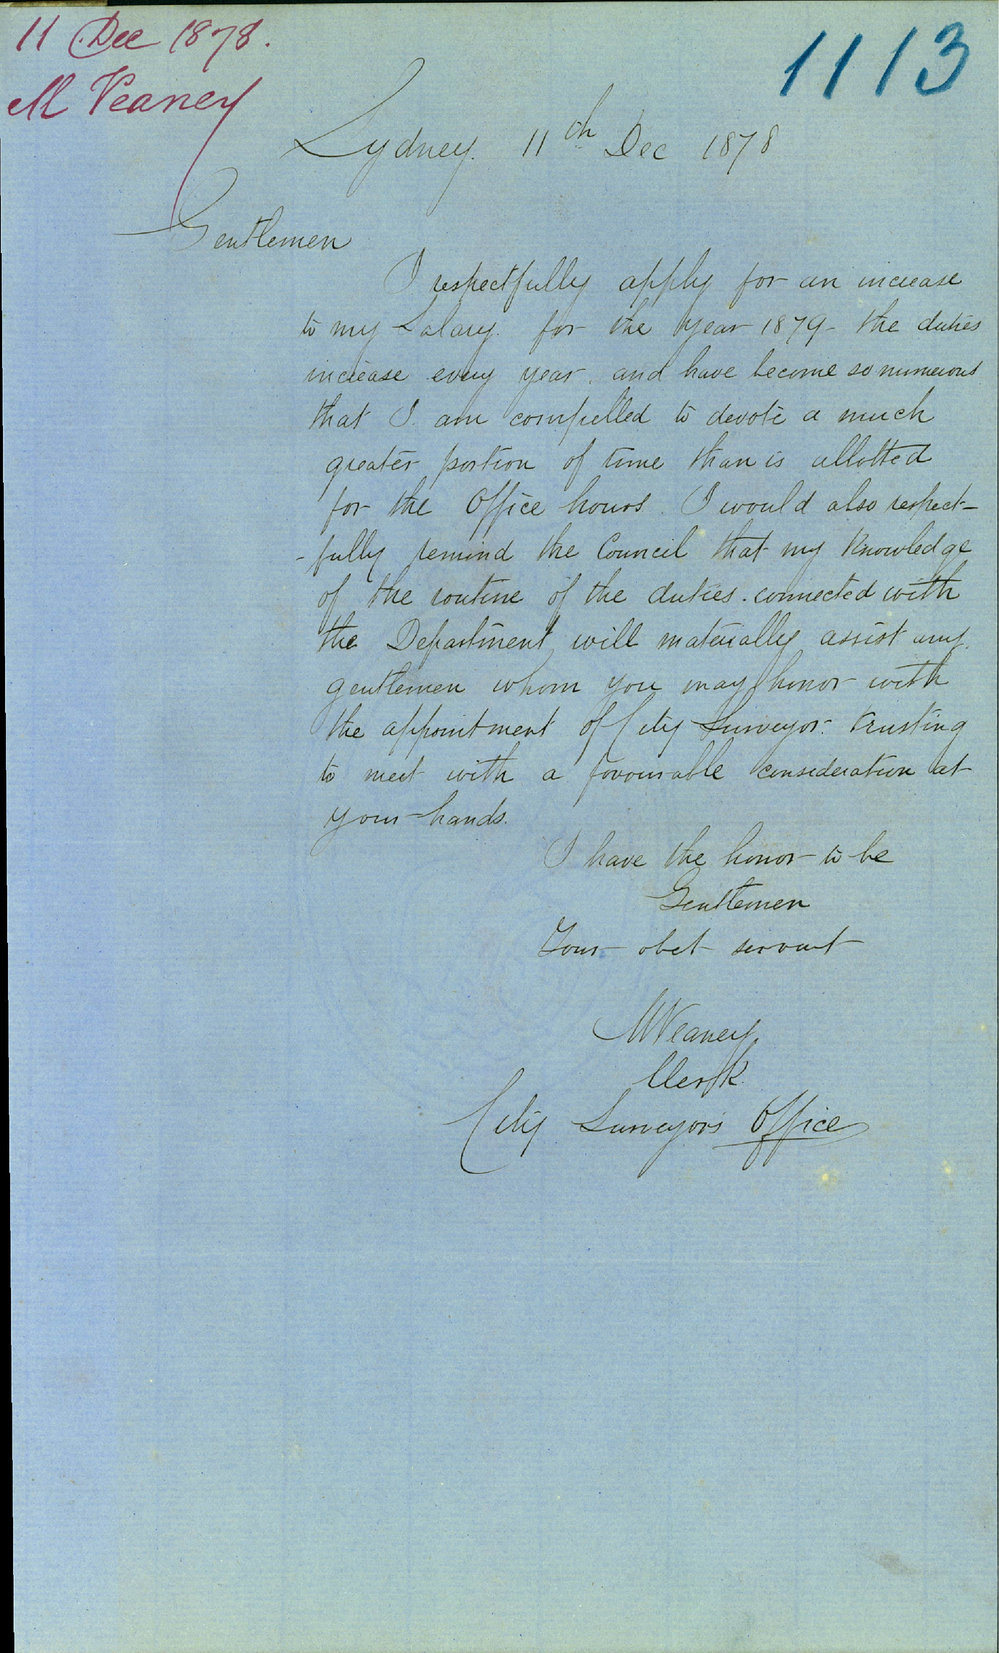 11 Dec 1878.
M Veaney
1113
Sydney. 11th Dec 1878
Gentlemen
I respectfully apply for an increase
to my Salary. for the year 1879 - the duties
increase every year. and have become so numerous
that I am compelled to devote a much
greater portion of time than is allotted
for the Office hours. I would also respect-
-fully remind the Council that my knowledge
of the routine of the duties. connected with
the Department, will materially assist any
gentlemen whom you may honor with
the appointment of City Surveyor. trusting
to meet with a favourable consideration at
your hands.
I have the honor to be
Gentlemen
Your obet servant
M Veaney.
Clerk.
City Surveyor's Office